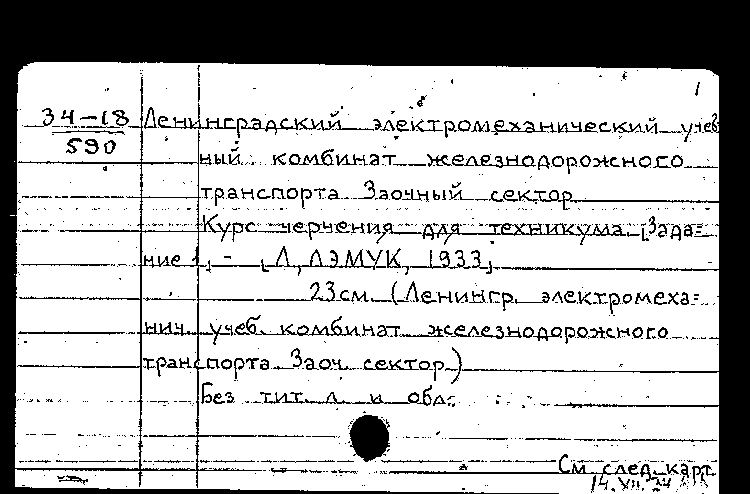 1
34-18 Ленинградский электромеханический учеб
590
ный комбинат железнодорожного
транспорта Заочный сектор
Курс черчения для техникума [Зада=
ние 1,] - [Л, ЛЭМУК, 1933]
23см. (Ленингр. электромеха=
нич. учеб. комбинат железнодорожного
транспорта Заоч. сектор)
Без тит. л. и обл.
См. след. карт.
14.XII.